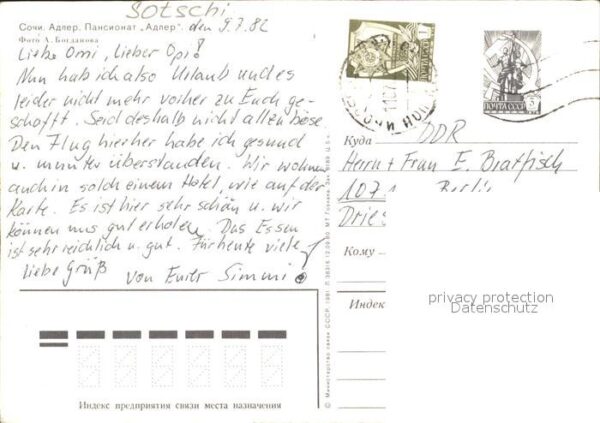 Sotschi
Сочи. Адлер. Пансионат „Адлер“.
den 9.7.82
Фото А. Богданова
Liebe Omi, lieber Opi!
Nun hab ich also Urlaub und es
leider nicht mehr vorher zu Euch ge-
schafft. Seid deshalb nicht allen böse.
Den Flug hierher habe ich gesund
u. munter überstanden. Wir wohnen
auch in solch einem Hotel, wie auf der
Karte. Es ist hier sehr schön u. wir
können uns gut erholen. Das Essen
ist sehr reichlich u. gut. Für heute viele
liebe Grüß
von Eurer Simmi
ПОЧТА СССР
Куда
DDR
Herrn + Frau E. Bratfisch
107 Berlin
Dries
Кому
Индекс
privacy protection
Datenschutz
Индекс предприятия связи места назначения
© Министерство связи СССР, 1981